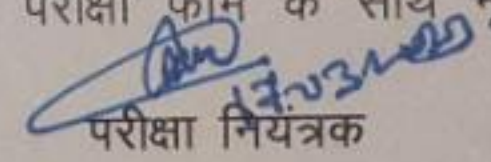 परीक्षा फॉर्म के साथ
17.03
परीक्षा नियंत्रक